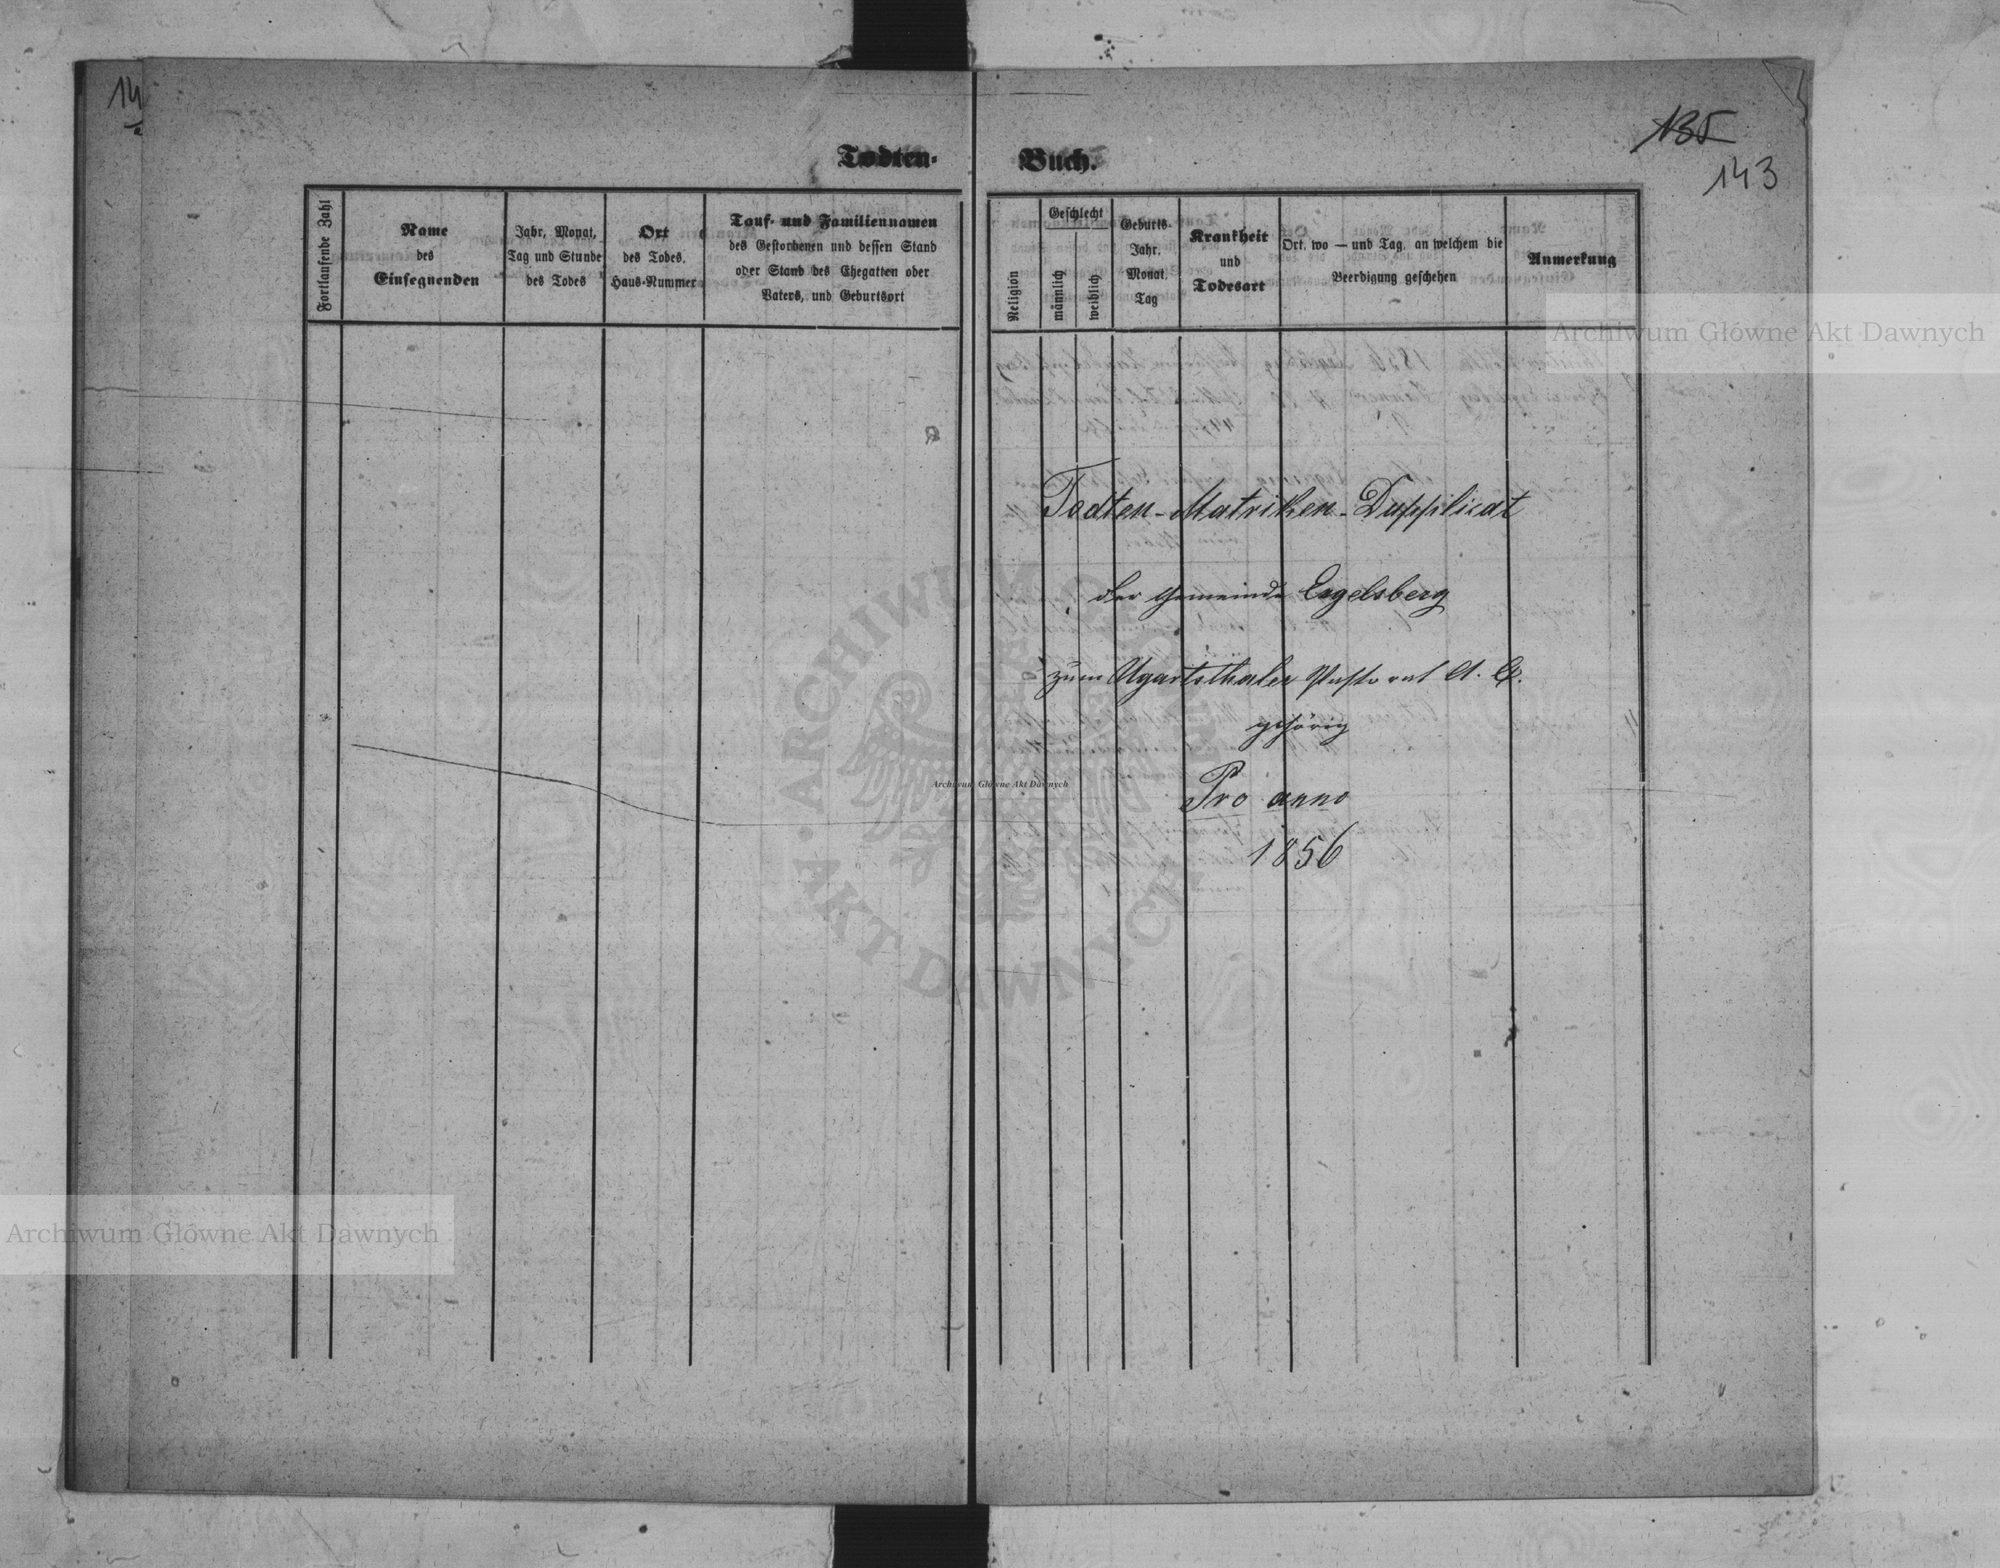 14
135
143
Todten-Buch.
Fortlaufende Zahl
Name
des
Einsegnenden
Jahr, Monat,
Tag und Stunde
des Todes
Ort
des Todes,
Haus-Nummer
Tauf- und Familiennamen
des Gestorbenen und dessen Stand
oder Stand des Ehegatten oder
Vaters, und Geburtsort
Religion
Geschlecht
männlich
weiblich
Geburts-
Jahr,
Monat,
Tag
Krankheit
und
Todesart
Ort, wo — und Tag, an welchem die
Beerdigung geschehen
Anmerkung
Todten-Matriken-Dupplicat
der Gemeinde Engelsberg
zum Ugartsthaler Pastorat A. C.
gehörig
Pro anno
1856
Archiwum Główne Akt Dawnych
ARCHIWUM GŁÓWNE AKT DAWNYCH
Archiwum Główne Akt Dawnych
Archiwum Główne Akt Dawnych